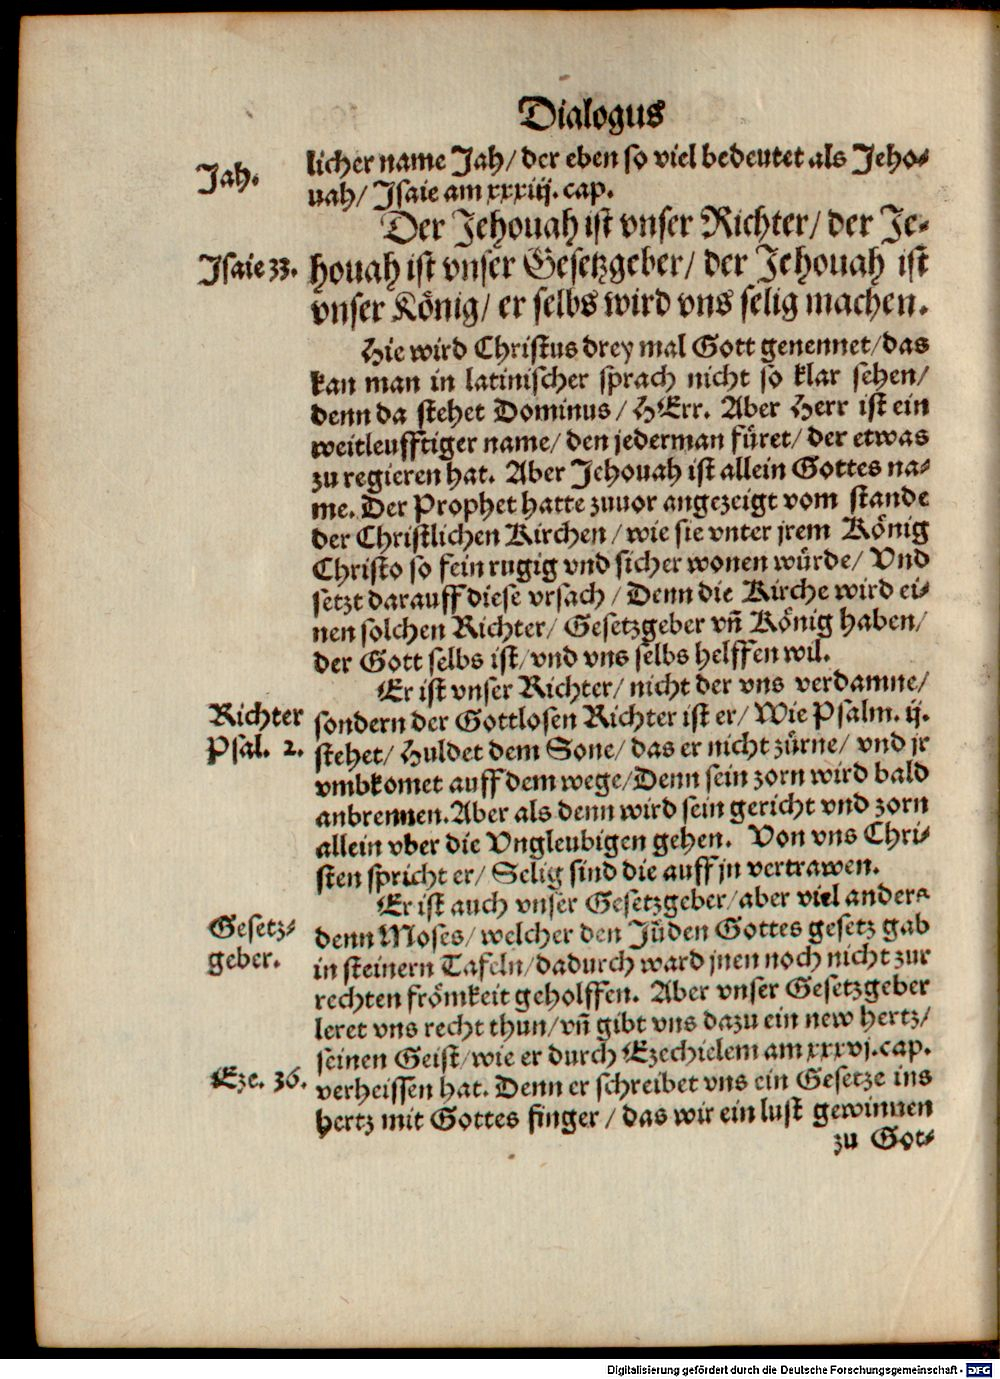 Dialogus
Jah.
licher name Jah/ der eben so viel bedeutet als Jeho⸗
uah/ Jsaie am xxxiij. cap.
Der Jehouah ist vnser Richter/ der Je⸗
Jsaie 33.
houah ist vnser Gesetzgeber/ der Jehouah ist
vnser König/ er selbs wird vns selig machen.
Hie wird Christus drey mal Gott genennet/das
kan man in latinischer sprach nicht so klar sehen/
denn da stehet Dominus/ HErr. Aber Herr ist ein
weitleufftiger name/ den jederman füret/ der etwas
zu regieren hat. Aber Jehouah ist allein Gottes na⸗
me. Der Prophet hatte zuuor angezeigt vom stande
der Christlichen Kirchen/ wie sie vnter jrem König
Christo so fein rugig vnd sicher wonen würde/ Vnd
setzt darauff diese vrsach/ Denn die Kirche wird ei⸗
nen solchen Richter/ Gesetzgeber vñ König haben/
der Gott selbs ist/vnd vns selbs helffen wil.
Er ist vnser Richter/ nicht der vns verdamne/
Richter
sondern der Gottlosen Richter ist er/ Wie Psalm. ij.
Psal. 2.
stehet/ Huldet dem Sone/ das er nicht zürne/ vnd jr
vmbkomet auff dem wege/Denn sein zorn wird bald
anbrennen.Aber als denn wird sein gericht vnd zorn
allein vber die Vngleubigen gehen. Von vns Chri⸗
sten spricht er/ Selig sind die auff jn vertrawen.
Er ist auch vnser Gesetzgeber/aber viel anders
Gesetz⸗
geber.
denn Moses/ welcher den Jüden Gottes gesetz gab
in steinern Tafeln/dadurch ward jnen noch nicht zur
rechten frömkeit geholffen. Aber vnser Gesetzgeber
leret vns recht thun/vñ gibt vns dazu ein new hertz/
seinen Geist/wie er durch Ezechielem am xxxvj.cap.
Eze. 36.
verheissen hat. Denn er schreibet vns ein Gesetze ins
hertz mit Gottes finger/ das wir ein lust gewinnen
zu Got⸗
Digitalisierung gefördert durch die Deutsche Forschungsgemeinschaft - DFG